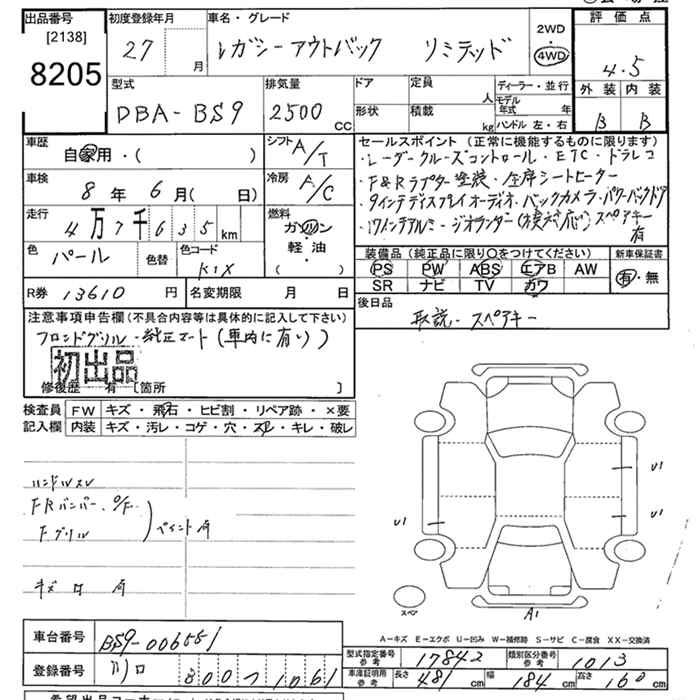 出品番号 初度登録年月 車名・グレード 評価点
[2138]
8205
27 月 レガシーアウトバック リミテッド 2WD 4WD 4.5
型式 排気量 ドア 定員 人 ディーラー・並行 外装 内装
DBA-BS9 2500 CC 形状 積載 kg モデル年式 年 B B
ハンドル 左・右
車歴 シフト A/T セールスポイント (正常に機能するものに限ります)
自家用・( )
・レーダークルーズコントロール・ETC・ドラレコ
車検 8年 6月( 日) 冷房 A/C
・F&Rラプター塗装・全席シートヒーター
走行 4万7千635km 燃料 ガソリン 軽・油 ( )
・9インチディスプレイオーディオ・バックカメラ・パワーバックドア
・17インチアルミ・ジオランダー スペアキー有
色 パール 色替 色コード K1X
装備品 (純正品に限り〇をつけてください) 新車保証書
PS PW ABS エアB AW 有・無
SR ナビ TV カワ
R券 13610 円 名変期限 月 日 後日品
取説・スペアキー
注意事項申告欄 (不具合内容等は具体的に記入して下さい)
フロントグリル・純正マート(車内に有い)
初出品
修復歴 有 [箇所 ]
検査員 FW キズ・飛石・ヒビ割・リペア跡・×要
記入欄 内装 キズ・汚レ・コゲ・穴・スレ・キレ・破レ
ハンドルスレ
FRバンパー、O/F
Fグリル
ペイント有
キズ 有
U1
U1
U1
スペ
A1
A-キズ E-エクボ U-凹み W-補修跡 S-サビ C-腐食 XX-交換済
車台番号 BS9-006551 型式指定番号 参考 17842 類別区分番号 参考 1013
登録番号 川口 300 つ 1061 車庫証明用 参考 長さ 481 cm 幅 184 cm 高さ 160 cm